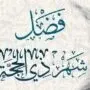 فَضْل
شَهْر ذِي الْحِجَّة